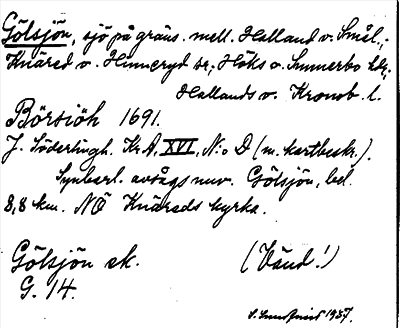 Gölsjön, sjö på gräns. mell. Halland o. Smål.;
Knäred o. Hinneryd sr; Höks o. Sunnerbo hdr;
Hallands o. Kronob. l.
Börsiöh 1691.
J. Söderlingh. Kr.A. XVI, N:o D (m. kartbeskr.).
Synberl. avsågs nuv. Gölsjön, bel.
8,8 km. NÖ Knäreds kyrka.
Gölsjön ek. (Vänd!)
G. 14.
1937.